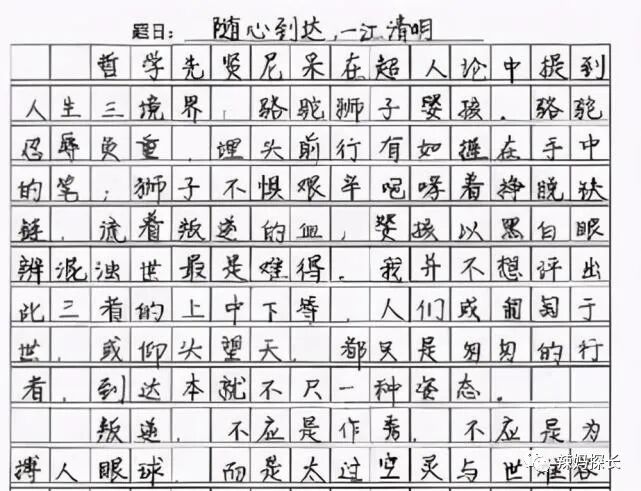 题目: 随心到达,一江清明
哲学先贤尼采在超人论中提到
人生三境界,骆驼狮子婴孩.骆驼
忍辱负重,埋头前行有如握在手中
的笔;狮子不惧艰辛咆哮着挣脱铁
链,流着叛逆的血,婴孩以黑白眼
辨混浊世最是难得.我并不想评出
此三者的上中下等,人们或匍匐于
世,或仰头望天,都只是匆匆的行
者,到达本就不只一种姿态.
叛逆,不应是作秀,不应是为
搏人眼球,而是太过空灵与世难容
辣妈探长